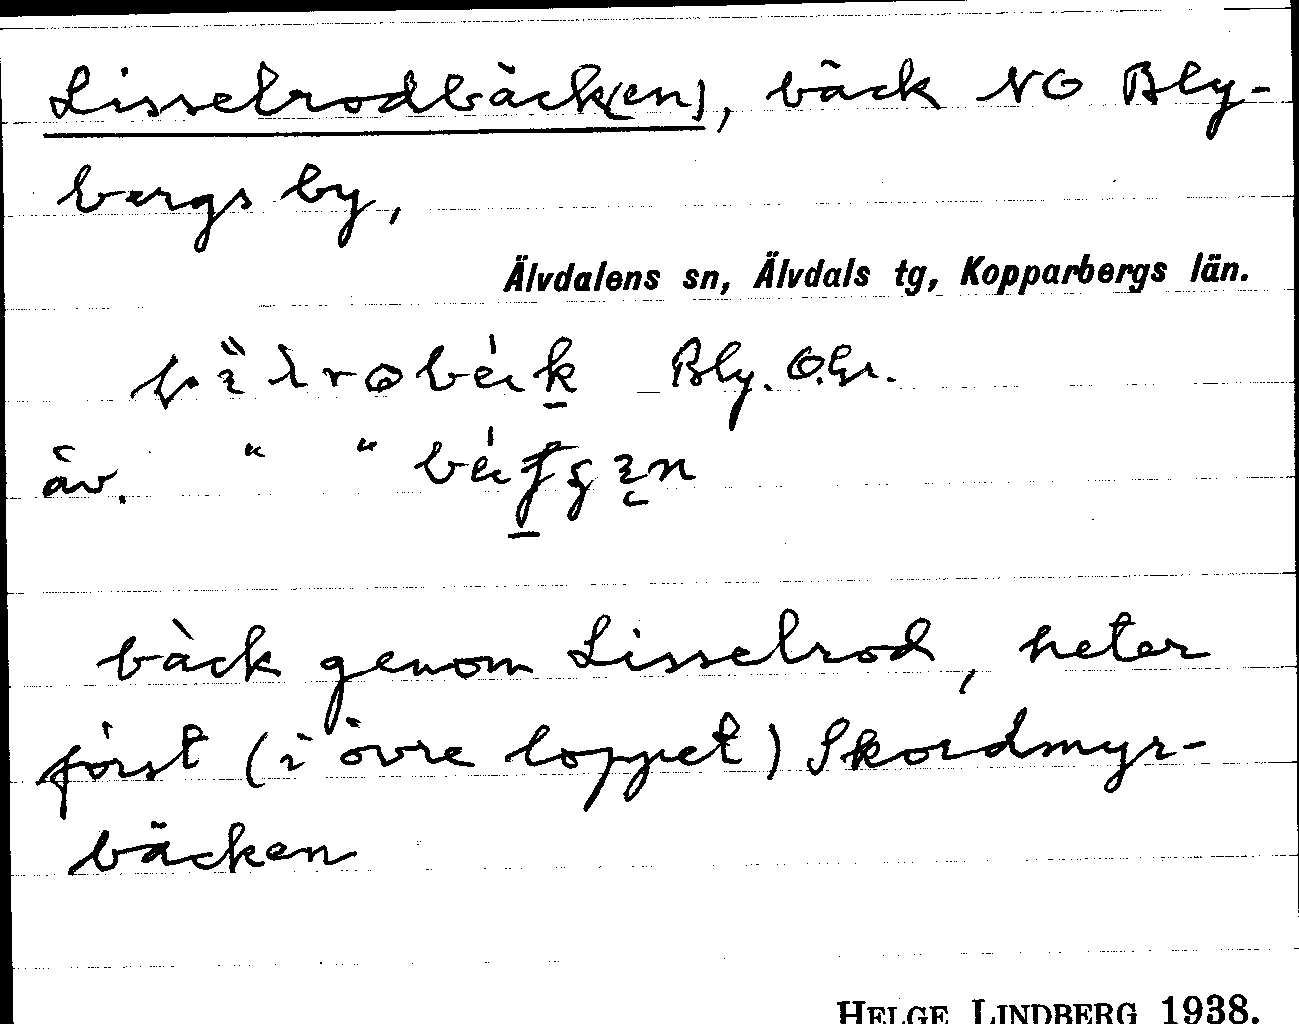 Lisselrodbäck(en), bäck NO Bly-
bergs by,
Älvdalens sn, Älvdals tg, Kopparbergs län.
Bly. O.Gr.
äv. " "
bäck genom Lisselrod, heter
först (i övre loppet) Skordmyr-
bäcken
HELGE LINDBERG 1938.